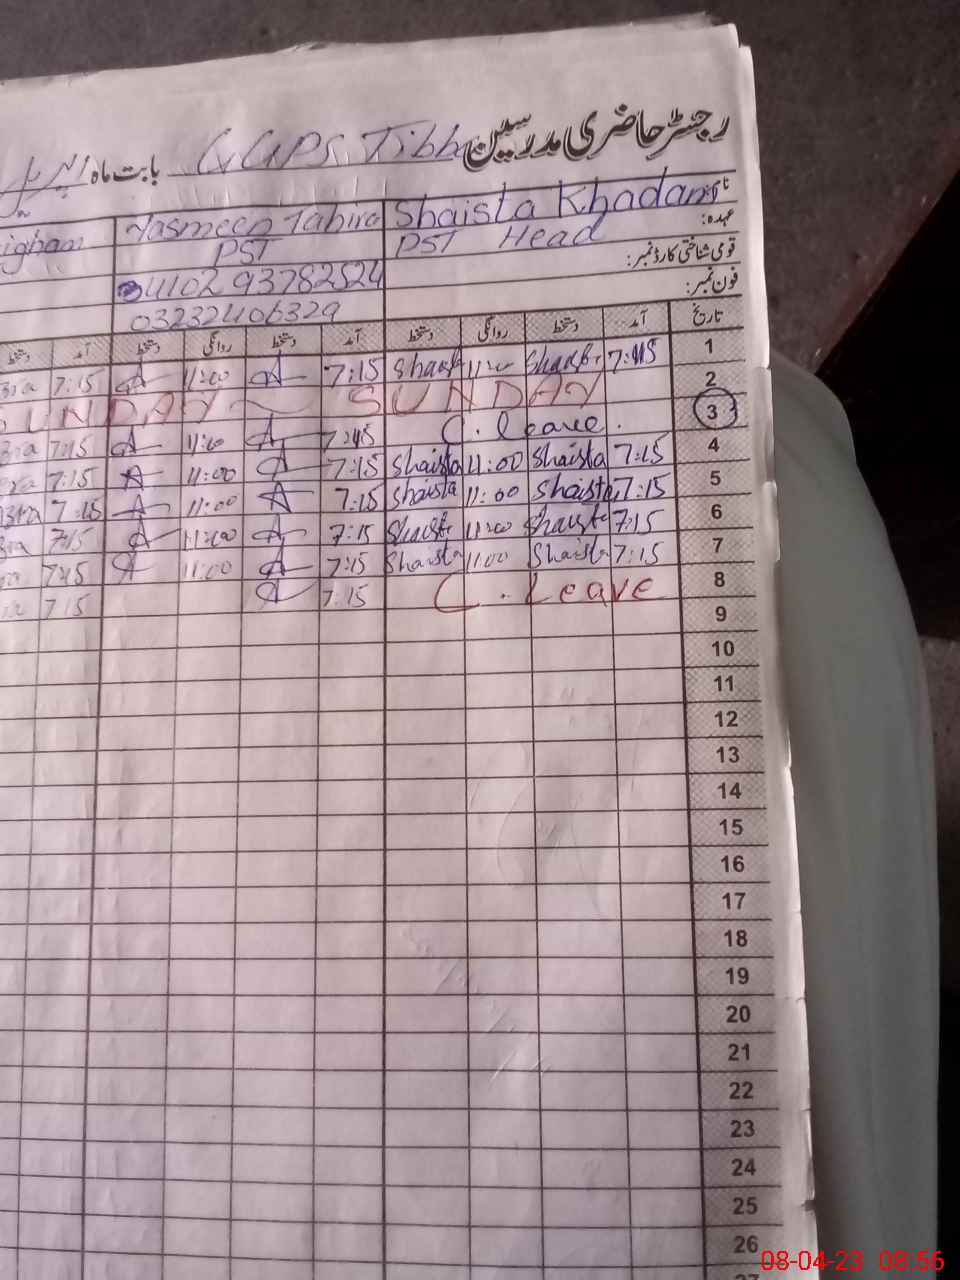 رجسٹر حاضری مدرسین GGPS Tibba بابت ماہ اپریل
نام: Shaista Khadam Yasmeen Tahira
عہدہ: PST Head PST
قومی شناختی کارڈ نمبر: 4110293782524
فون نمبر: 03232406329
تاریخ آمد دستخط روانگی دستخط آمد دستخط روانگی دستخط آمد دستخط
1 7:15 Shaista 11:00 Shaista 7:15 11:00 7:15
2 SUNDAY SUNDAY
3 C. leave. 7:15 11:00 7:15
4 7:15 Shaista 11:00 Shaista 7:15 11:00 7:15
5 7:15 Shaista 11:00 Shaista 7:15 11:00 7:15
6 7:15 Shaista 11:00 Shaista 7:15 11:00 7:15
7 7:15 Shaista 11:00 Shaista 7:15 11:00 7:15
8 C. Leave 7:15 7:15
9
10
11
12
13
14
15
16
17
18
19
20
21
22
23
24
25
26
27
08-04-23 08:56